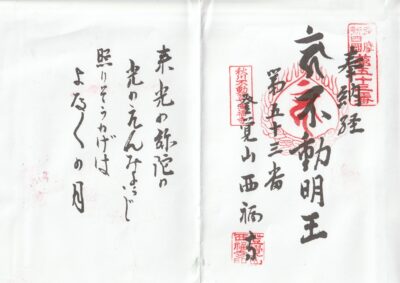 奉納経
不動明王
第五十三番
西福寺
第五十三番
来光の弥陀の
光のえんみょうじ
照りそうかげは
よな〱の月